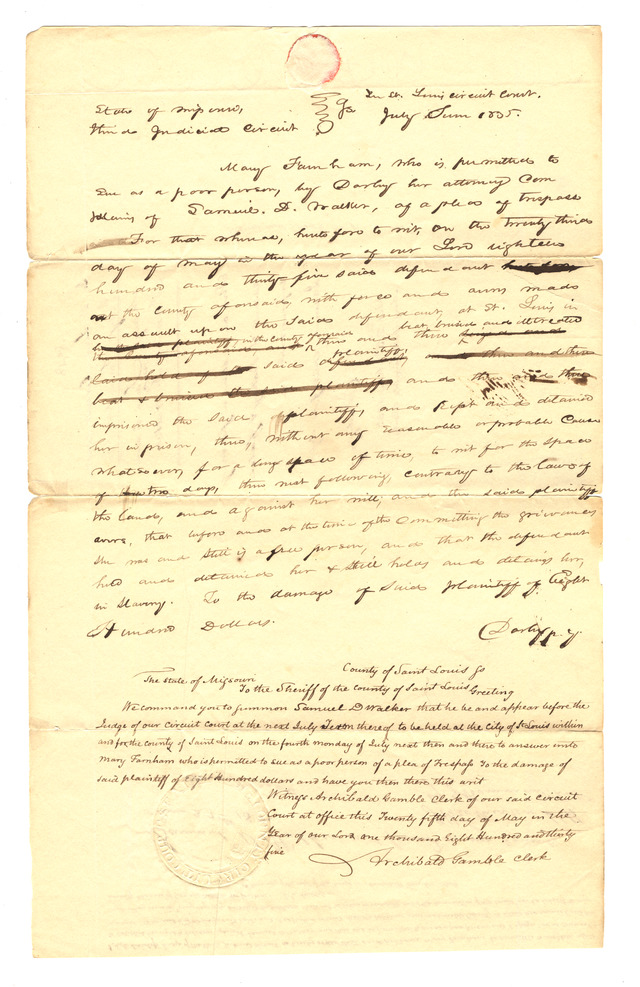 In St. Louis circuit Court.
State of Missouri,
July Term 1835.
third Judicial Circuit
Mary Farnham, who is permitted to
sue as a poor person, by Darby her attorney Com
plains of Samuel. D. Walker, of a plea of trespass
For that whereas, heretofore to wit, on the twenty third
day of May in the year of our Lord eighteen
hundred and thirty five said defendant
at the County aforesaid, with force and arms made
an assault upon the said defendant, at St. Louis in
the County aforesaid and then and there beat, bruised and illtreated
said plaintiff, and then and there
imprisoned the said plaintiff, and kept and detained
her in prison, there, without any reasonable or probable Cause
whatsoever, for a long space of time, to wit for the space
of two days, then next following, contrary to the laws of
the land, and against her will; and the said plaintiff
avers, that before and at the time of the Committing the grievances
she was and still is a free person, and that the defendant
held and detained her & still holds and detains her,
in Slavery. To the damage of said plaintiff of Eight
Hundred Dollars.
Darby p. q.
County of Saint Louis ss
The State of Missouri
To the Sheriff of the county of Saint Louis Greeting
We command you to summon Samuel D Walker that he be and appear before the
Judge of our Circuit Court at the next July Term thereof to be held at the City of St Louis within
and for the county of Saint Louis on the fourth monday of July next then and there to answer unto
Mary Farnham who is permitted to sue as a poor person of a plea of Trespass To the damage of
said plaintiff of Eight Hundred dollars and have you then there this writ
Witness Archibald Gamble Clerk of our said circuit
Court at office this Twenty fifth day of May in the
Year of our Lord one thousand Eight Hundred and thirty
five
Archibald Gamble Clerk